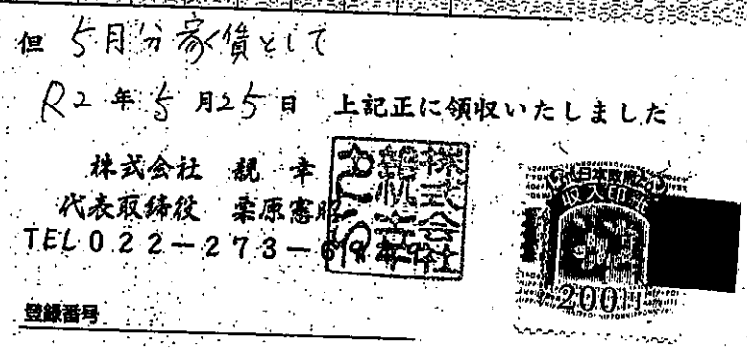 但 5月分家賃として
R2年5月25日 上記正に領収いたしました
株式会社 親幸
代表取締役 栗原憲昭
TEL 022-273-6
株式会社親幸
日本政府
収入印紙
200円
登録番号